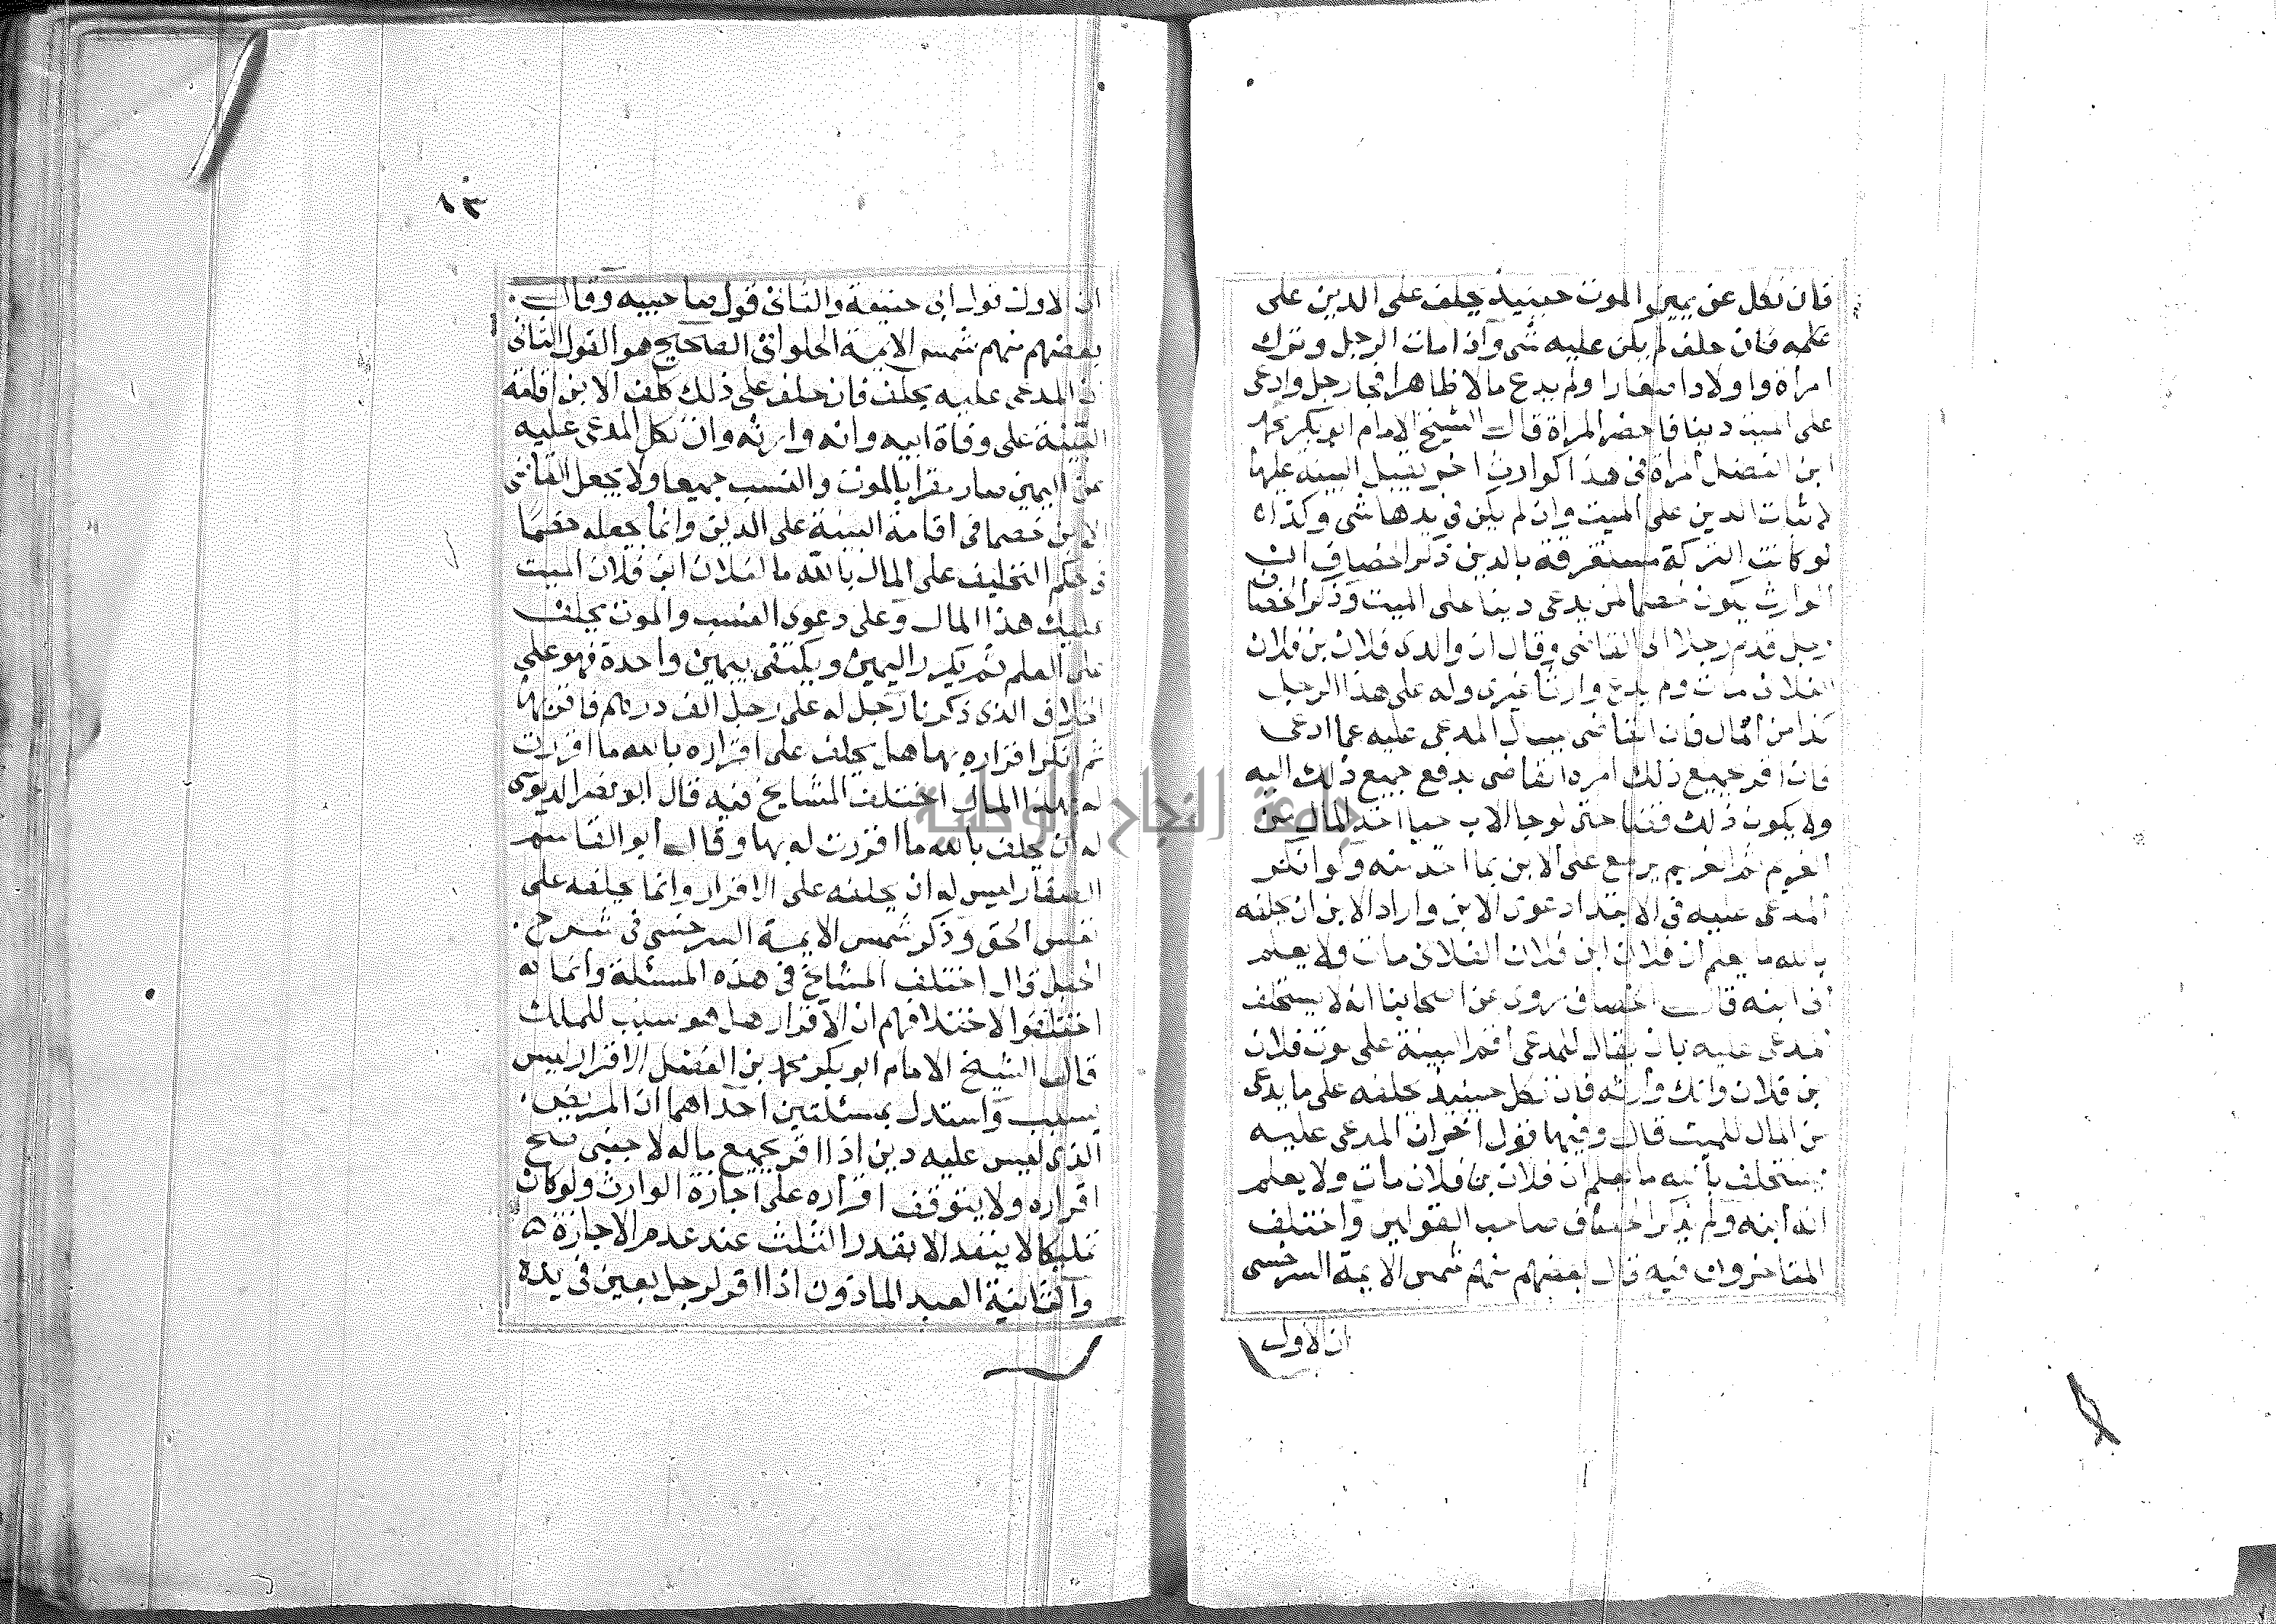 فان نكل عن يمين الموت حينيذ يحلف على الدين على
علمه فان حلف لم يكن عليه شي واذا مات الرجل وترك
امراة واولادا صغارا ولم يدع مالا ظاهرا فجا رجل وادعى
على الميت دينا فاحضر المراة قال الشيخ الامام ابو بكر محمد
ابن الفضل امراة في هذا كوارث اخر يقبل البينة عليها
لاثبات الدين على الميت وان لم يكن في يدها شي وكذا
لو كانت التركة مستغرقة بالدين ذكر الخصاف ان
الوارث يكون خصما لمن يدعى دينا على الميت وذكر الخصاف
رجل قدم رجلا الى القاضي وقال ان والدى فلان بن فلان
الفلاني مات ولم يدع وارثا غيرى وله على هذا الرجل
كذا من المال فان القاضي يسال المدعى عليه عما ادعى
فان اقر جميع ذلك امره القاضي بدفع جميع ذلك اليه
ولا يكون ذلك قضا حتى لو جا الاب حيا اخذ المال من
الغريم ثم الغريم يرجع على الابن بما اخذ منه ولو انكر
المدعى عليه في الابتدا دعوى الابن واراد الابن ان يحلفه
بالله ما يعلم ان فلان ابن فلان الفلاني مات ولا يعلم
ان ابنه قال الخصاف روى عن اصحابنا انه لا يستحلف
المدعى عليه بان يقال للمدعى اقم البينة على موت فلان
بن فلان وانك وارثه فان نكل حينيذ يحلفه على ما يدعى
من المال للميت قال وفيها قول اخر ان المدعى عليه
يستحلف بانيه ما يعلم ان فلان بن فلان مات ولا يعلم
انه ابنه ولم يذكر الخصاف صاحب القولين واختلف
المتاخرون فيه قال بعضهم منهم شمس الايمة السرخسى
ان الاول
١٣
ان الاول قول ابى حنيفة والثانى قول صاحبيه وقال
بعضهم منهم شمس الايمة الحلوانى الصحيح هو القول الثانى
ان المدعى عليه يحلف فان حلف على ذلك كلف الابن اقامة
البينة على وفاة ابيه وانه وارثه وان نكل المدعى عليه
عن اليمين صار مقرا بالموت والنسب جميعا ولا يجعل القاضى
الابن خصما فى اقامة البينة على الدين وانما جعله خصما
فى حكم التحليف على المال بالله ما لفلان ابن فلان الميت
عليك هذا المال وعلى دعوى النسب والموت يحلف
على العلم ثم يكرر اليمين ويكتفى بيمين واحدة فهو على
الخلاف الذى ذكرنا رجل له على رجل الف درهم فاقر بها
ثم انكر اقراره بها هل يحلف على اقراره بالله ما اقررت
له بهذا المال اختلف المشايخ فيه قال ابو نصر الدبوسى
له ان يحلف بالله ما اقررت له بها وقال ابو القاسم
الصفار ليس له ان يحلفه على الاقرار وانما يحلفه على
نفس الحق وذكر شمس الايمة السرخسى فى شرح
الحيل قال اختلف المشايخ فى هذه المسئلة وانما
اختلفوا لاختلافهم ان الاقرار هل هو سبب للملك
قال الشيخ الامام ابو بكر محمد بن الفضل الاقرار ليس
بسبب واستدل بمسئلتين احداهما ان المريض
الذى ليس عليه دين اذا اقر بجميع ماله لاجنبى صح
اقراره ولا يتوقف اقراره على اجازة الوارث ولو كان
تمليكا لا ينفذ الا بقدر الثلث عند عدم الاجازة
والثانية العبد الماذون اذا اقر لرجل بعين فى يده
جامعة النجاح الوطنية